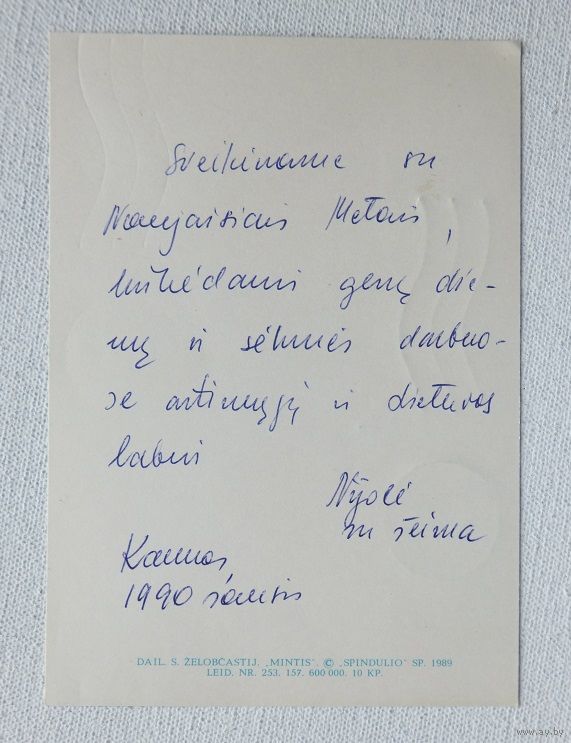 Sveikiname su
Naujaisiais Metais,
linkėdami gerų die-
nų ir sėkmės darbuo-
se artimųjų ir Lietuvos
labui
Nijolė
su šeima
Kaunas
1990 sausis
DAIL. S. ŽELOBČASTIJ. „MINTIS". © „SPINDULIO" SP. 1989
LEID. NR. 253. 157. 600 000. 10 KP.
www.ay.by